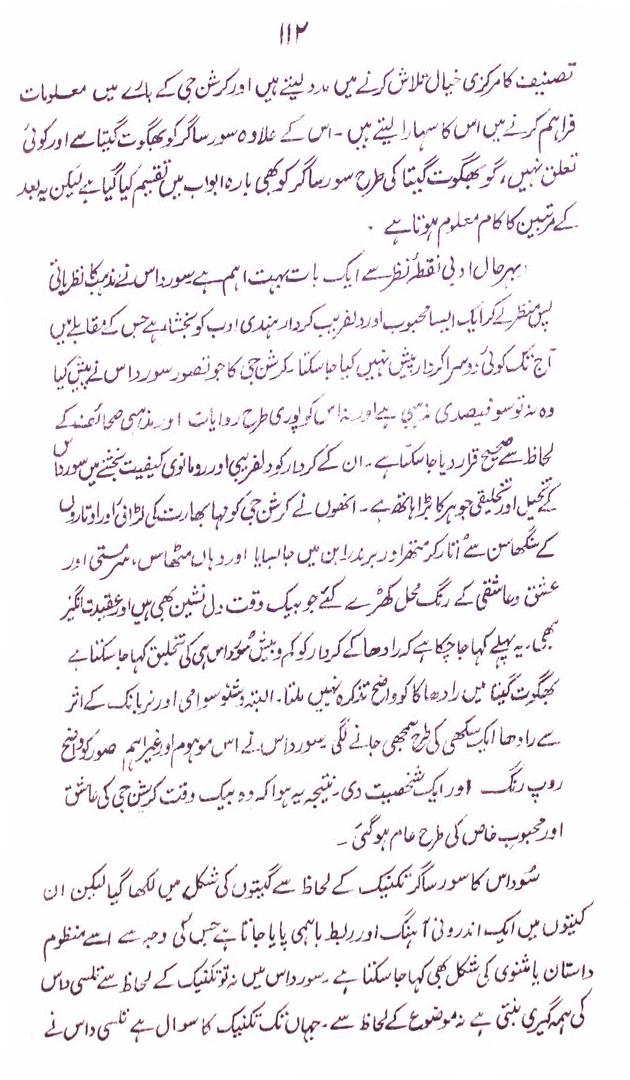 ۱۱۲
تصنیف کا مرکزی خیال تلاش کرنے میں مدد لیتے ہیں اور کرشن جی کے بارے میں معلومات
فراہم کرنے میں اس کا سہارا لیتے ہیں۔ اس کے علاوہ سور ساگر کو بھگوت گیتا سے اور کوئی
تعلق نہیں، گو بھگوت گیتا کی طرح سور ساگر کو بھی بارہ ابواب میں تقسیم کیا گیا ہے لیکن یہ بعد
کے مرتبین کا کام معلوم ہوتا ہے۔
بہرحال ادبی نقطۂ نظر سے ایک بات بہت اہم ہے سورداس نے مذہب کا نظریاتی
پس منظر لے کر ایک ایسا محبوب اور دلفریب کردار ہندی ادب کو بخشا ہے جس کے مقابلے میں
آج تک کوئی دوسرا کردار پیش نہیں کیا جا سکتا۔ کرشن جی کا جو تصور سورداس نے پیش کیا
وہ نہ تو سو فیصدی مذہبی ہے اور نہ اس کو پوری طرح روایات اور مذہبی صحائف کے
لحاظ سے صحیح قرار دیا جا سکتا ہے۔ ان کے کردار کو دلفریبی اور رومانوی کیفیت بخشنے میں سورداس
کے تخیل اور تخلیقی جوہر کا بڑا ہاتھ ہے۔ انھوں نے کرشن جی کو مہا بھارت کی لڑائی اور اوتاروں
کے سنگھاسن سے اُتار کر متھرا اور برندرابن میں جا بسایا اور وہاں مٹھاس، سرمستی اور
عشق و عاشقی کے رنگ محل کھڑے کئے جو بیک وقت دل نشین بھی ہیں اور عقیدت انگیز
بھی۔ یہ پہلے کہا جا چکا ہے کہ رادھا کے کردار کو کم و بیش سُورداس ہی کی تخلیق کہا جا سکتا ہے
بھگوت گیتا میں رادھا کا کو واضح تذکرہ نہیں ملتا۔ البتہ وشنو سوامی اور نربانک کے اثر
سے رادھا ایک سکھی کی طرح سمجھی جانے لگی سورداس نے اس موہوم اور غیر اہم صور کو واضح
روپ رنگ اور ایک شخصیت دی۔ نتیجہ یہ ہوا کہ وہ بیک وقت کرشن جی کی عاشق
اور محبوب خاص کی طرح عام ہو گئی۔
سُورداس کا سور ساگر تکنیک کے لحاظ سے گیتوں کی شکل میں لکھا گیا لیکن ان
گیتوں میں ایک اندرونی آہنگ اور ربط باہمی پایا جاتا ہے جس کی وجہ سے اسے منظوم
داستان یا مثنوی کی شکل بھی کہا جا سکتا ہے۔ سورداس میں نہ تو تکنیک کے لحاظ سے تلسی داس
کی ہمہ گیری بنتی ہے نہ موضوع کے لحاظ سے۔ جہاں تک تکنیک کا سوال ہے تلسی داس نے